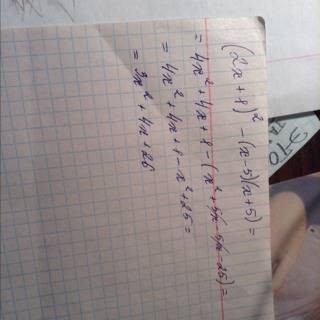 (2x+8)² - (x-5)(x+5) =
= 4x² + 4x + 8 - (x² + 5x - 5x - 25) =
= 4x² + 4x + 8 - x² + 25 =
= 3x² + 4x + 26
ЭТО